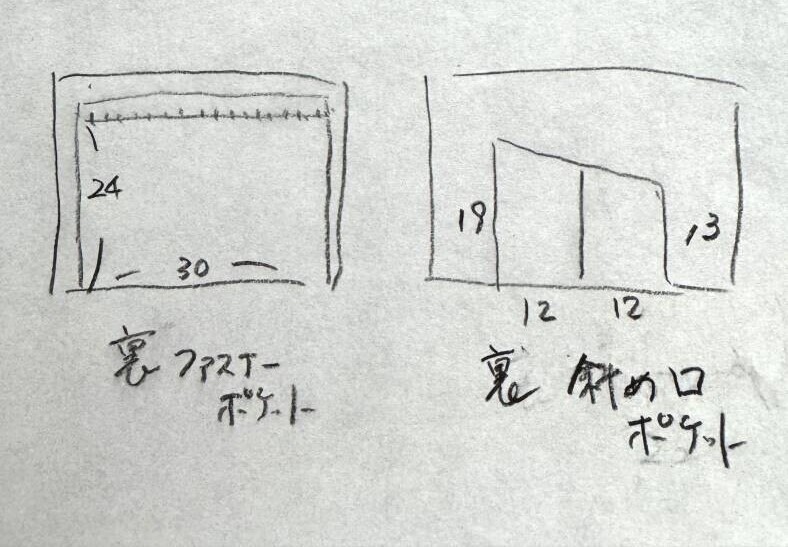 24
30
裏 ファスナー
ポケット
18
13
12 12
裏 斜め口
ポケット